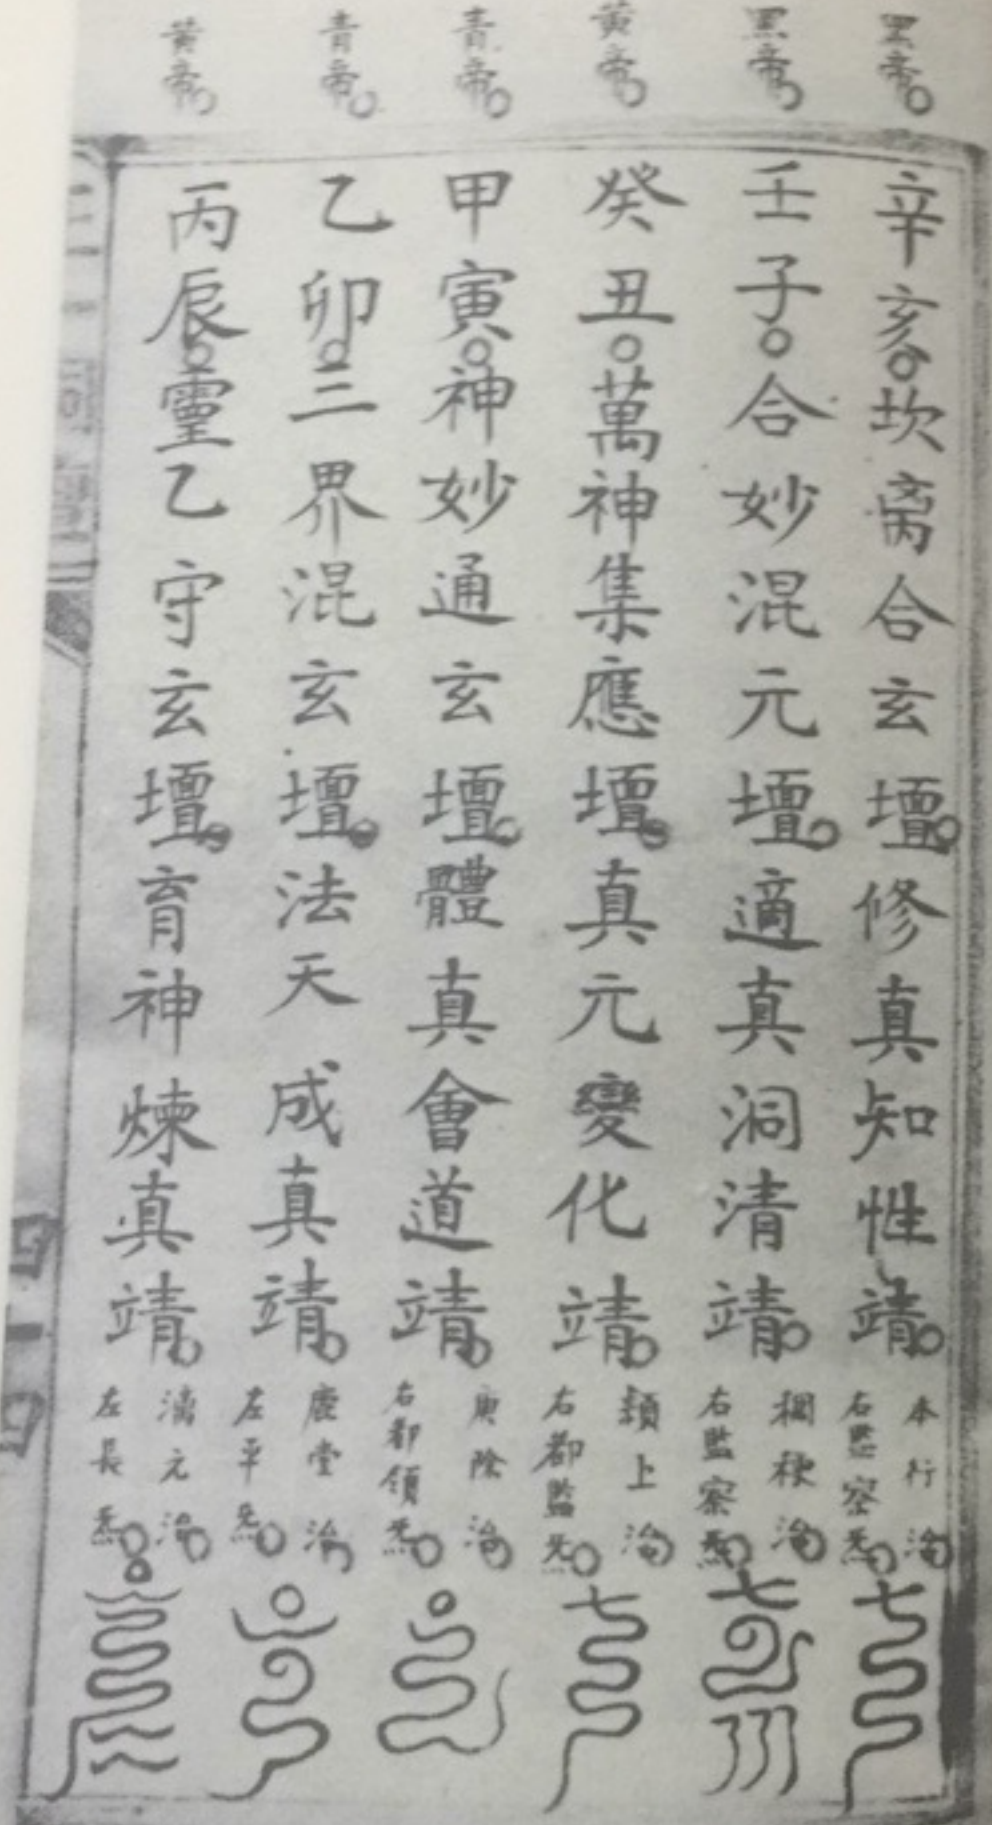 黑帝
辛亥坎离合玄壇修真知性靖
本行治
右察炁
黑帝
壬子合妙混元壇適真洞清靖
稠稉治
右監察炁
黃帝
癸丑萬神集應壇真元變化靖
上治
右都監炁
青帝
甲寅神妙通玄壇體真會道靖
庚除治
右都領炁
青帝
乙卯三界混玄壇法天成真靖
鹿堂治
左平炁
黃帝
丙辰靈乙守玄壇育神煉真靖
漓元治
左長炁